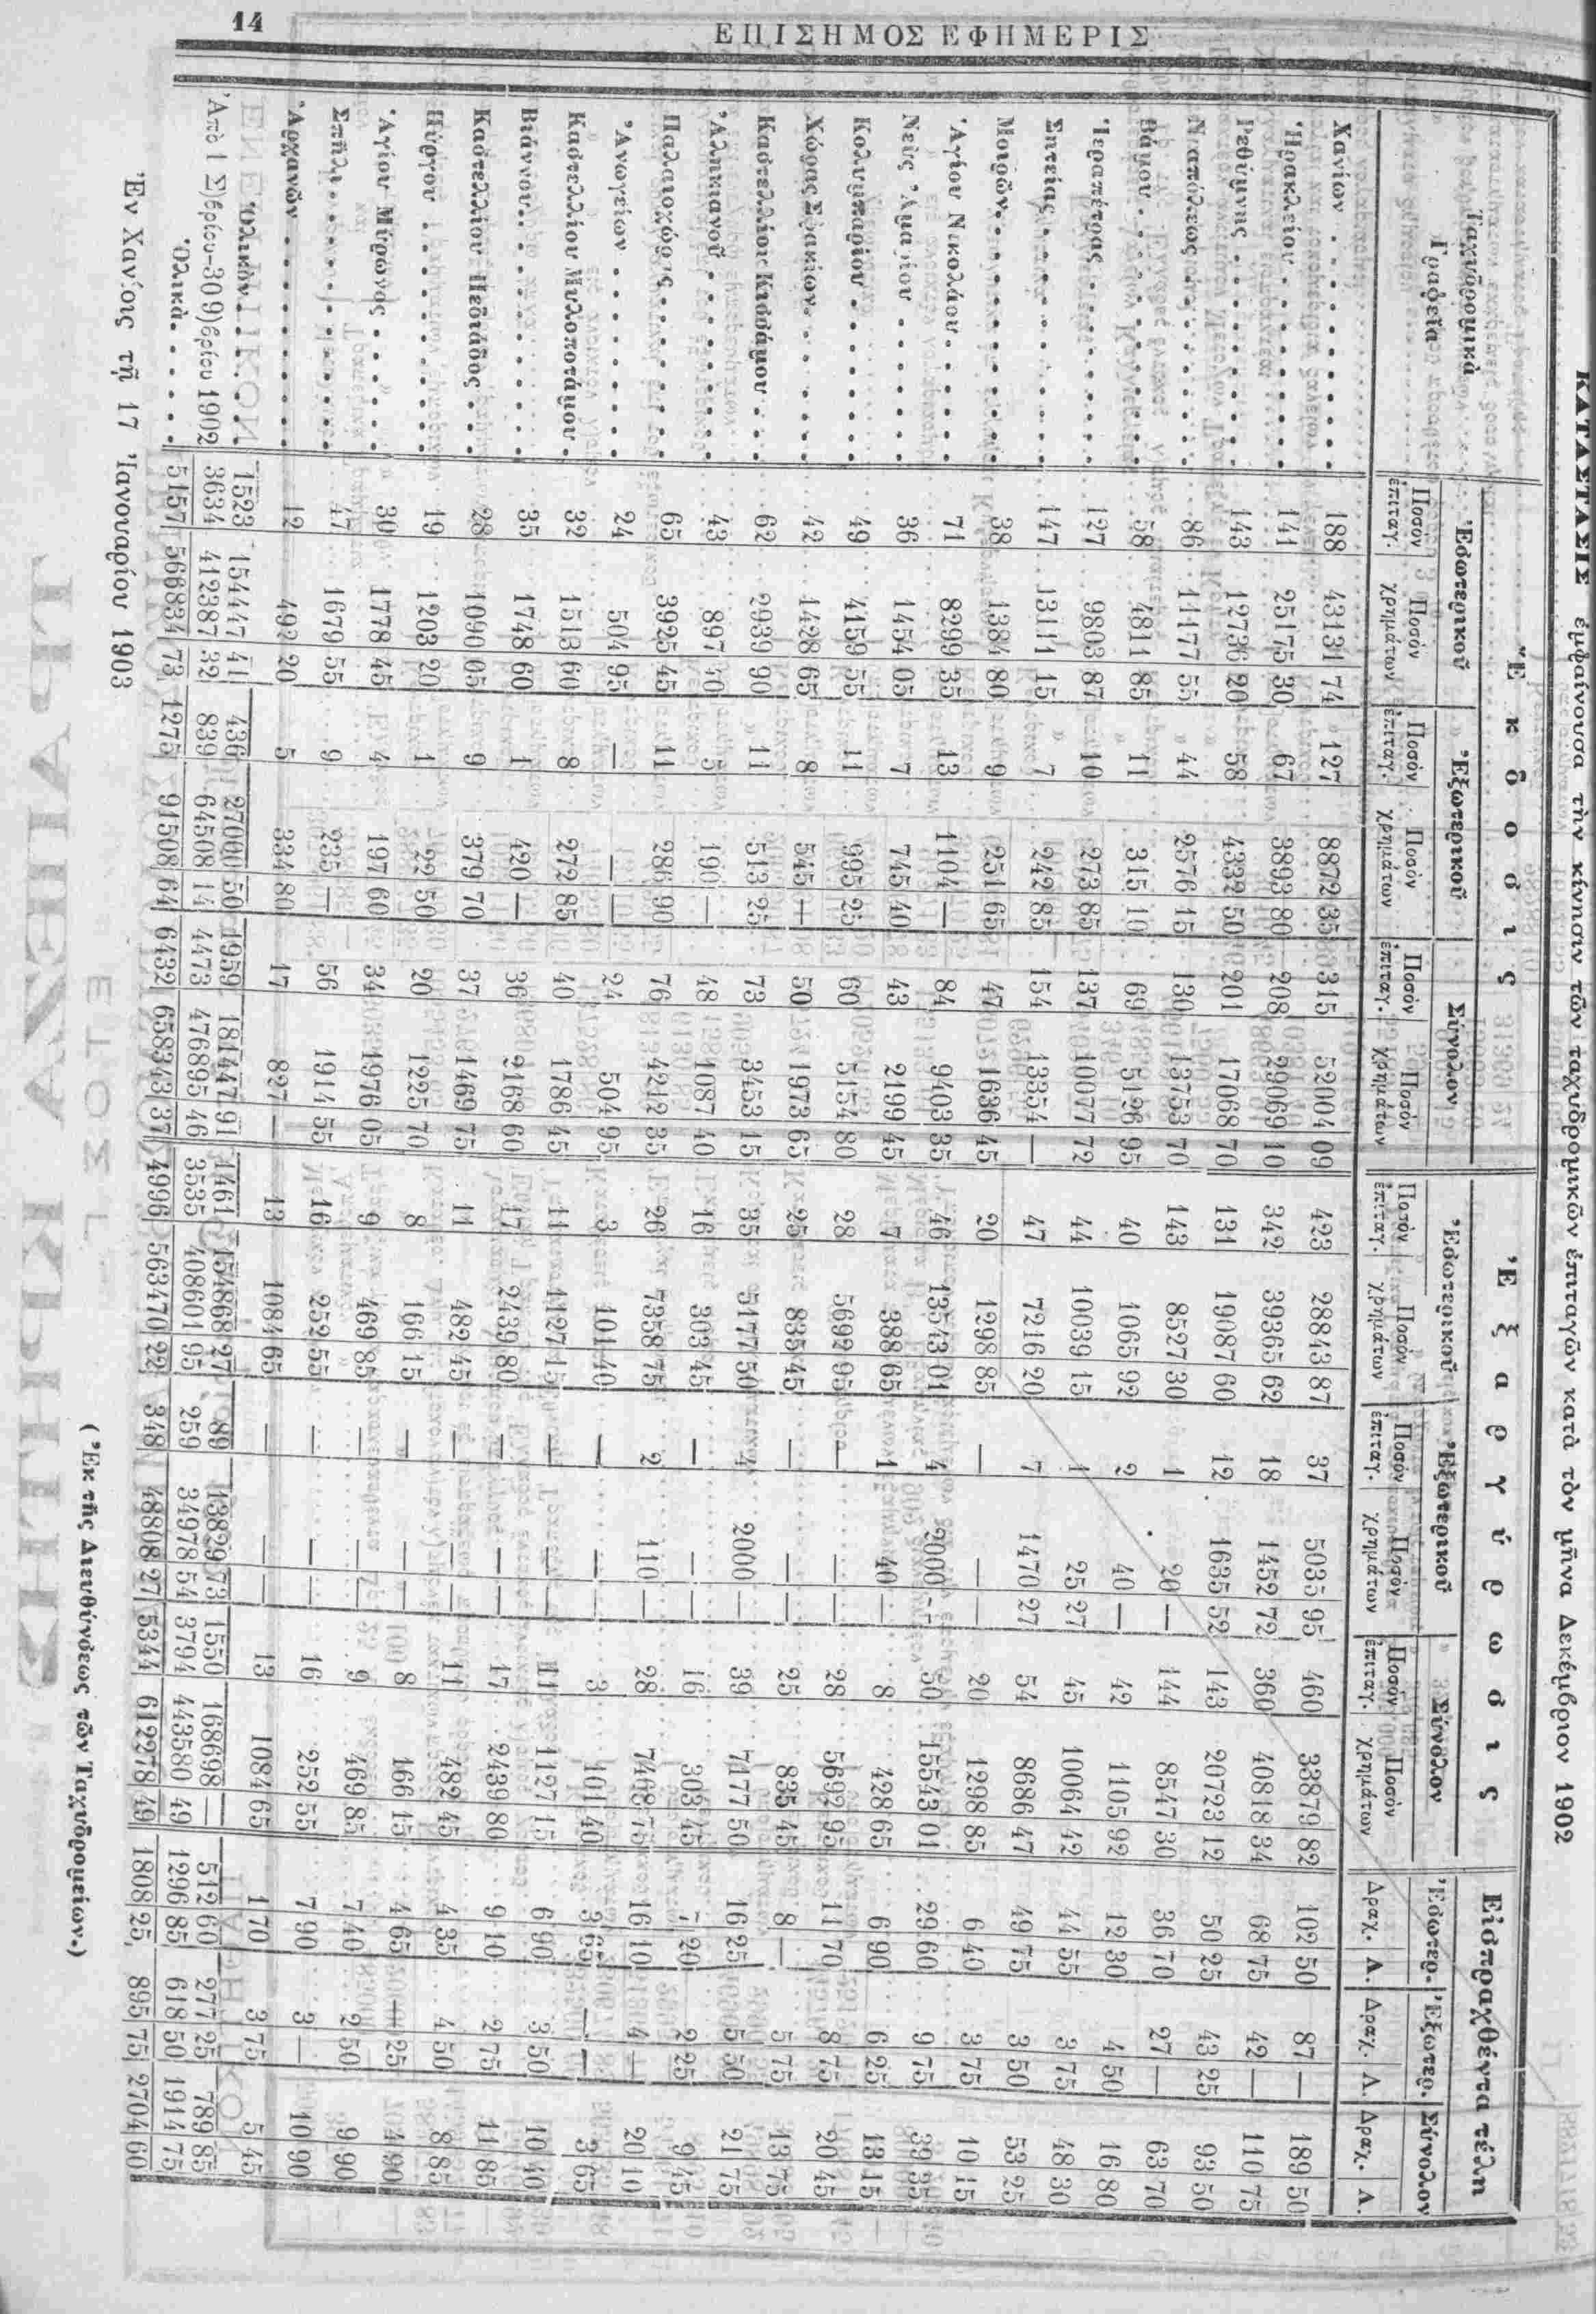 14 ΕΠΙΣΗΜΟΣ ΕΦΗΜΕΡΙΣ
ΚΑΤΑΣΤΑΣΙΣ ἐμφαίνουσα τὴν κίνησιν τῶν ταχυδρομικῶν ἐπιταγῶν κατὰ τὸν μῆνα Δεκέμβριον 1902
Ταχυδρομικὰ Γραφεῖα Ἔκδοσις Ἐξαργύρωσις Εἰσπραχθέντα τέλη
Ἐσωτερικοῦ Ἐξωτερικοῦ Σύνολον Ἐσωτερικοῦ Ἐξωτερικοῦ Σύνολον Ἐσωτερ. Ἐξωτερ. Σύνολον
Ποσὸν ἐπιταγ. Ποσὸν χρημάτων Ποσὸν ἐπιταγ. Ποσὸν χρημάτων Ποσὸν ἐπιταγ. Ποσὸν χρημάτων Ποσὸν ἐπιταγ. Ποσὸν χρημάτων Ποσὸν ἐπιταγ. Ποσὸν χρημάτων Ποσὸν ἐπιταγ. Ποσὸν χρημάτων Δραχ. Λ. Δραχ. Λ. Δραχ. Λ.
Χανίων 188 43131 74 127 8872 35 315 52004 09 423 28843 87 37 5035 95 460 33879 82 102 50 87 — 189 50
Ἡρακλείου 141 25175 30 67 3893 80 208 29069 10 342 39365 62 18 1452 72 360 40818 34 68 75 42 — 110 75
Ρεθύμνης 143 12736 20 58 4332 50 201 17068 70 131 19087 60 12 1635 52 143 20723 12 50 25 43 25 93 50
Νεαπόλεως 86 11177 55 44 2576 15 130 13753 70 143 8527 30 1 20 — 144 8547 30 36 70 27 — 63 70
Βάμου 58 4811 85 11 315 10 69 5126 95 40 1065 92 2 40 — 42 1105 92 12 30 4 50 16 80
Ἱεραπέτρας 127 9803 87 10 273 85 137 10077 72 44 10039 15 1 25 27 45 10064 42 44 55 3 75 48 30
Σητείας 147 13111 15 7 242 85 154 13354 — 47 7216 20 7 1470 27 54 8686 47 49 75 3 50 53 25
Μοιρῶν 38 1384 80 9 251 65 47 1636 45 20 1298 85 — — — 20 1298 85 6 40 3 75 10 15
Ἁγίου Νικολάου 71 8299 35 13 1104 — 84 9403 35 46 13543 01 4 2000 — 50 15543 01 29 60 9 75 39 35
Νεῦς Ἀμαρίου 36 1454 05 7 745 40 43 2199 45 7 388 65 1 40 — 8 428 65 6 90 6 25 13 15
Κολυμπαρίου 49 4159 55 11 995 25 60 5154 80 28 5692 95 — — — 28 5692 95 11 70 8 75 20 45
Χώρας Σφακίων 42 1428 65 8 545 — 50 1973 65 25 835 45 — — — 25 835 45 8 — 5 75 13 75
Καστελλίου Κισσάμου 62 2939 90 11 513 25 73 3453 15 35 5177 50 4 2000 — 39 7177 50 16 25 5 50 21 75
Ἀληκιανοῦ 43 897 40 5 190 — 48 1087 40 16 303 45 — — — 16 303 45 7 20 2 25 9 45
Παλαιοχώρας 65 3925 45 11 286 90 76 4212 35 26 7358 75 2 110 — 28 7468 75 16 10 4 — 20 10
Ἀνωγείων 24 504 95 — — — 24 504 95 3 101 40 — — — 3 101 40 3 65 — — 3 65
Καστελλίου Μυλοποτάμου 32 1513 60 8 272 85 40 1786 45 11 1127 15 — — — 11 1127 15 6 90 3 50 10 40
Βιάννου 35 1748 60 1 420 — 36 2168 60 17 2439 80 — — — 17 2439 80 9 10 2 75 11 85
Καστελλίου Πεδιάδος 28 1090 05 9 379 70 37 1469 75 11 482 45 — — — 11 482 45 4 35 4 50 8 85
Πύργου 19 1203 20 1 22 50 20 1225 70 8 166 15 — — — 8 166 15 4 65 — 25 4 90
Ἁγίου Μύρωνος 30 1778 45 4 197 60 34 1976 05 9 469 85 — — — 9 469 85 7 40 2 50 9 90
Σπῆλι 47 1679 55 9 235 — 56 1914 55 16 252 55 — — — 16 252 55 7 90 3 — 10 90
Ἀρχανῶν 12 492 20 5 334 80 17 827 — 13 1084 65 — — — 13 1084 65 1 70 3 75 5 45
Ὁλικὸν 1523 154447 41 436 27000 50 1959 181447 91 1461 154868 27 89 13829 73 1550 168698 — 512 60 277 25 789 85
Ἀπὸ 1 Σ)βρίου-30 9)βρίου 1902 3634 412387 32 839 64508 14 4473 476895 46 3535 408601 95 259 34978 54 3794 443580 49 1296 85 618 50 1914 75
Ὁλικὰ 5157 566834 73 1275 91508 64 6432 658343 37 4996 563470 22 348 48808 27 5344 612278 49 1808 25 895 75 2704 60
Ἐν Χανίοις τῇ 17 Ἰανουαρίου 1903
(Ἐκ τῆς Διευθύνσεως τῶν Ταχυδρομείων.)